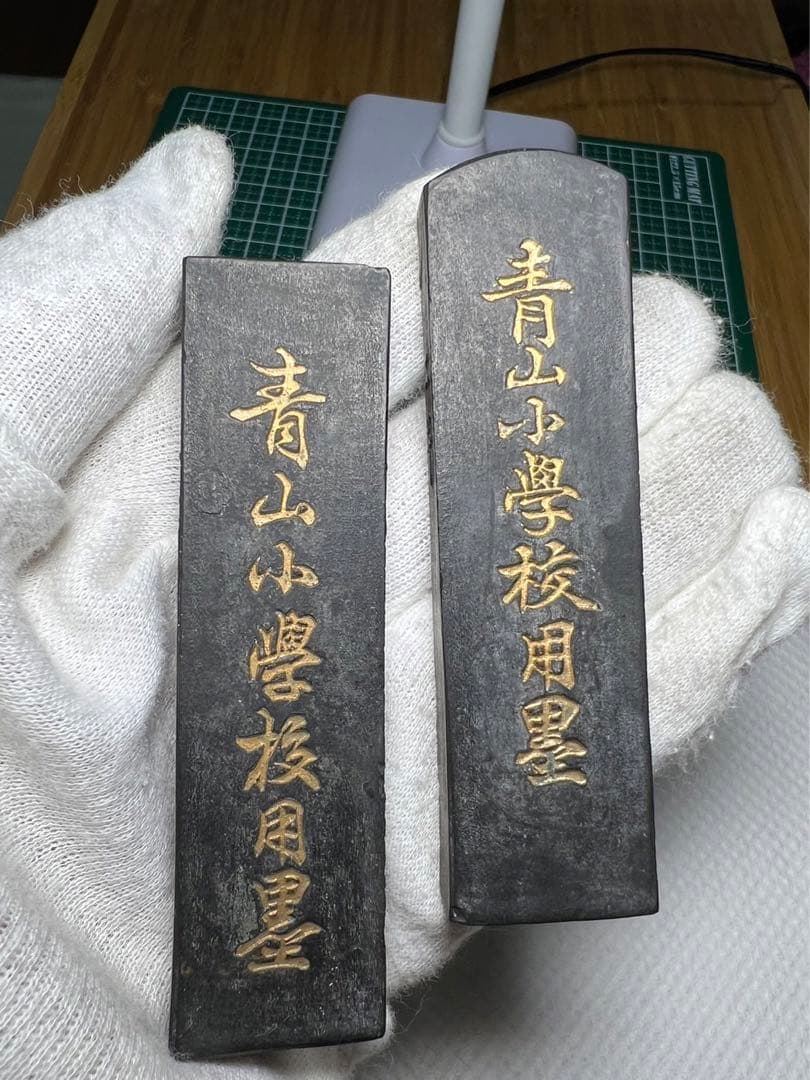 青山小學校用墨
青山小學校用墨